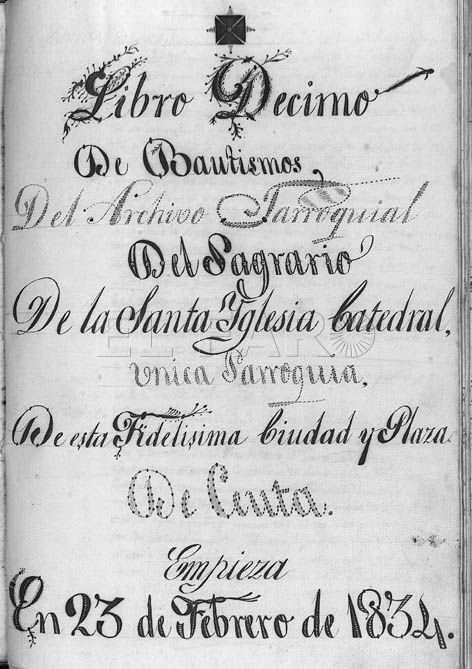 Libro Decimo
De Bautismos,
Del Archivo Parroquial
Del Sagrario
De la Santa Yglesia Catedral,
EL FARO
vnica Parroquia,
De esta Fidelisima Ciudad y Plaza
De Ceuta.
Empieza
En 23 de Febrero de 1834.